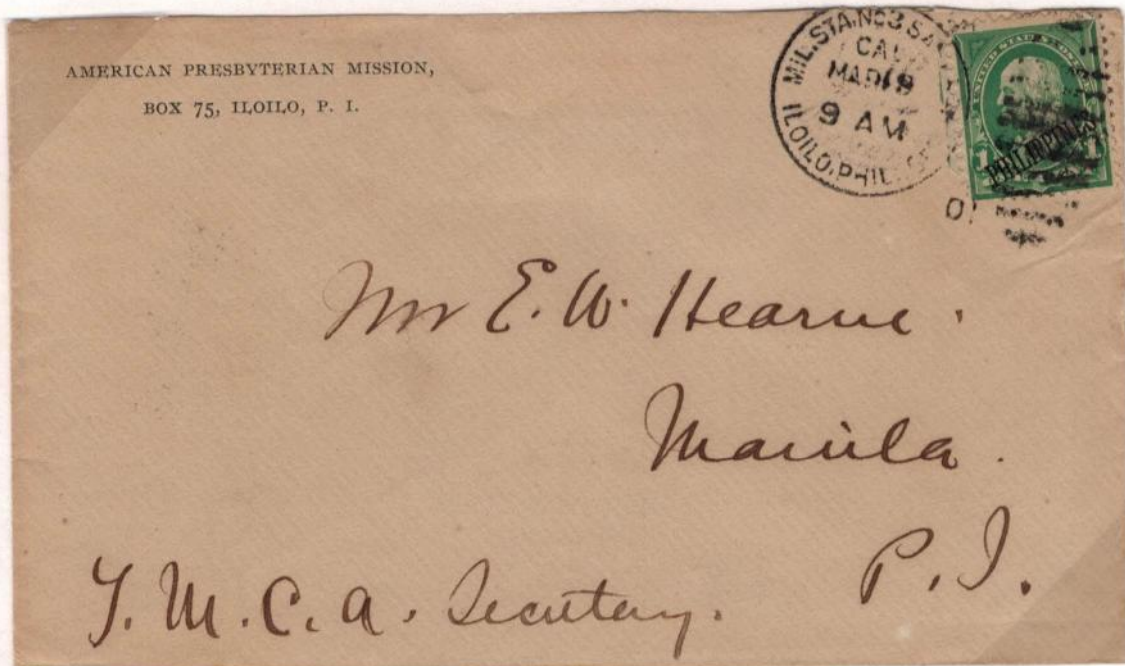 AMERICAN PRESBYTERIAN MISSION,
BOX 75, ILOILO, P. I.
MIL. STA. NO 3
CAL
MAR 18
9 AM
ILOILO, PHIL.
UNITED STATES
PHILIPPINES
1 1
Mr E. W. Hearne.
Manila.
P. I.
Y. M. C. A. Secretary.